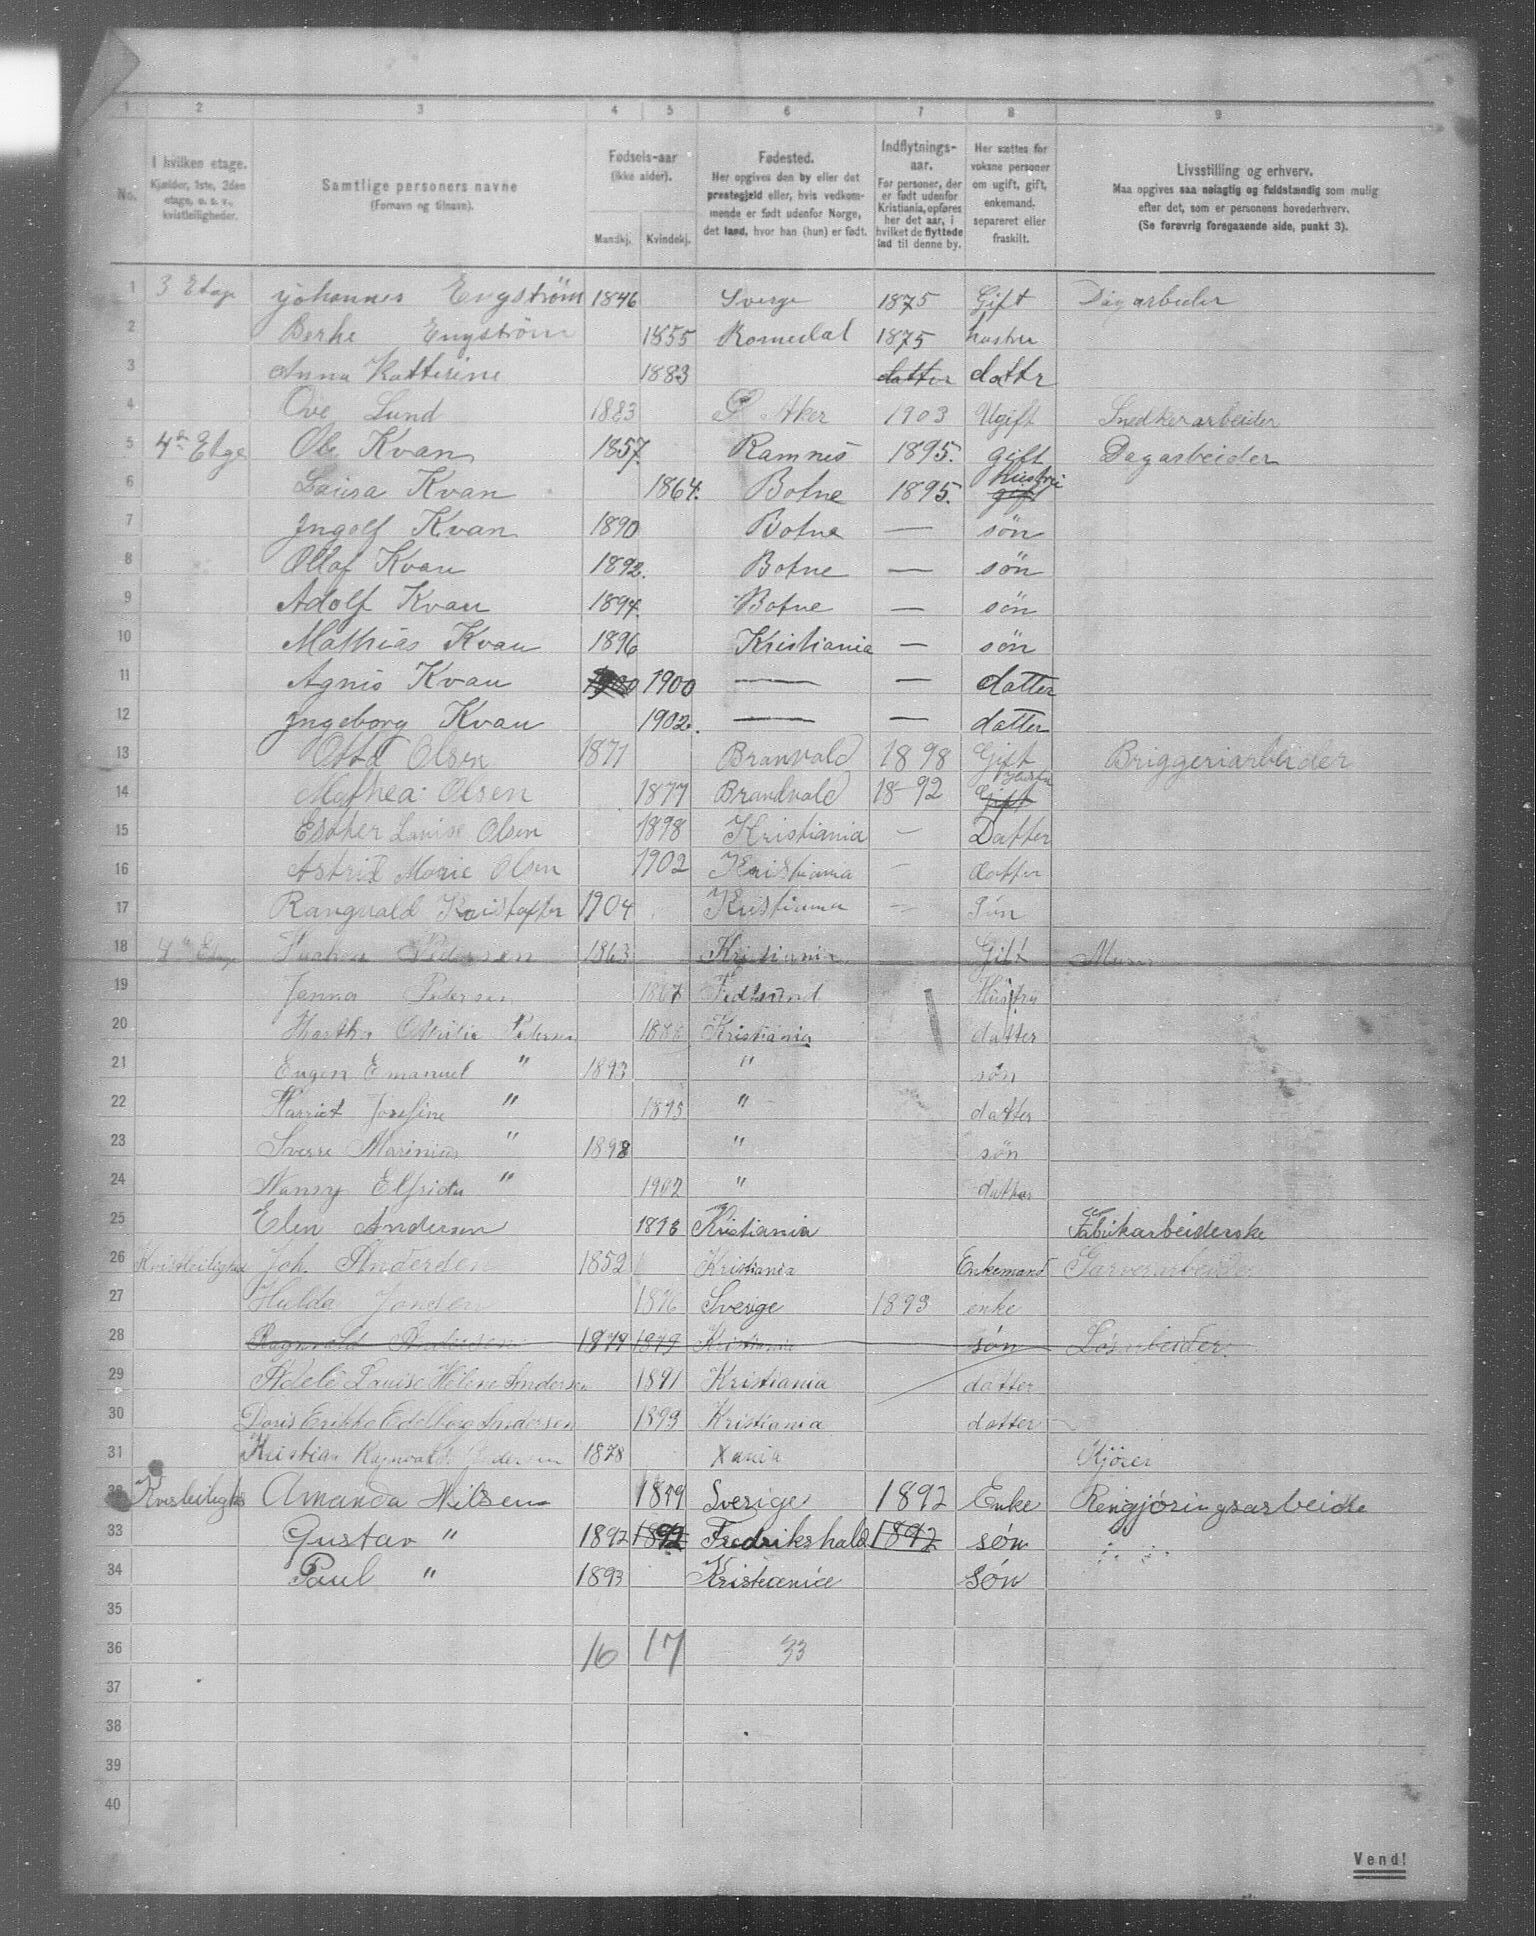 1 2 3 4 5 6 7 8 9
No.
I hvilken etage.
Kjælder, 1ste, 2den
etage, o. s. v.,
kvistleiligheder.
Samtlige personers navne
(Fornavn og tilnavn).
Fødsels-aar
(ikke alder).
Mandkj. Kvindekj.
Fødested.
Her opgives den by eller det
prestegjeld eller, hvis vedkom-
mende er født udenfor Norge,
det land, hvor han (hun) er født.
Indflytnings-
aar.
For personer, der
er født udenfor
Kristiania, opføres
her det aar, i
hvilket de flyttede
ind til denne by.
Her sættes for
voksne personer
om ugift, gift,
enkemand,
separeret eller
fraskilt.
Livsstilling og erhverv.
Maa opgives saa nøiagtig og fuldstændig som mulig
efter det, som er personens hovederhverv.
(Se forøvrig foregaaende side, punkt 3).
1 3 Etage Johannes Engström 1846 Sverge 1875 Gift Dagarbeider
2 Berhe Engström 1855 Romedal 1875 hustru
3 Anna Katterine 1883 datter dattr
4 Ove Lund 1883 Aker 1903 Ugift Snedkerarbeider
5 4de Etge Ole Kvan 1857. Ramnes 1895. gift Dagarbeider
6 Laura Kvan 1864. Botne 1895. gift hustru
7 Ingolf Kvan 1890 Botne — søn
8 Ollaf Kvan 1892. Botne — søn
9 Adolf Kvan 1894. Botne — søn
10 Mathias Kvan 1896 Kristiania — søn
11 Agnis Kvan 1900 1900 — — datter
12 Ingeborg Kvan 1902. — — datter
13 Otto Olsen 1871 Branvald 1898 Gift Briggeriarbeider
14 Mathea Olsen 1877 Brandvald 18-92 Gift Hustru
15 Esther Louise Olsen 1898 Kristiania — Datter
16 Astrid Marie Olsen 1902 Kristiania — datter
17 Rangvald Kristoffer 1904 Kristiania — Søn
18 4de Etage Pedersen 1863 Kristiania Gift
19 Janna Pedersen 1867 Hustru
20 Martha Pedersen Kristiania datter
21 Eugen Emanuel " 1893 " søn
22 Harriet Josefine " 1895 " datter
23 Sverre Marinius " 1898 " søn
24 Nansy Elfrida " 1902 " datter
25 Elen Andersen 1876 Kristiania Fabrikarbeiderske
26 Kvistleilighed Joh. Andersen 1852 Kristiania Enkemand Garverarbeider
27 Hulda Jonsen 1876 Sverige 1893 enke
28 Ragnvald Andersen 1879 1879 Kristiania søn Løsarbeider.
29 Adele Louise Helene Andersen 1891 Kristiania datter
30 Doris Erikka Edelborg Andersen 1893 Kristiania datter
31 Kristian Ragnvald Andersen 1878 Xania Kjører
32 Kvistleilighed Amanda Nilsen 1859 Sverige 1892 Enke Rengjöringsarbeide
33 Gustav " 1892 1892 Fredrikshald 1892 søn
34 Paul " 1893 Kristianice Søn
35
36 16 17 33
37
38
39
40
Vend!